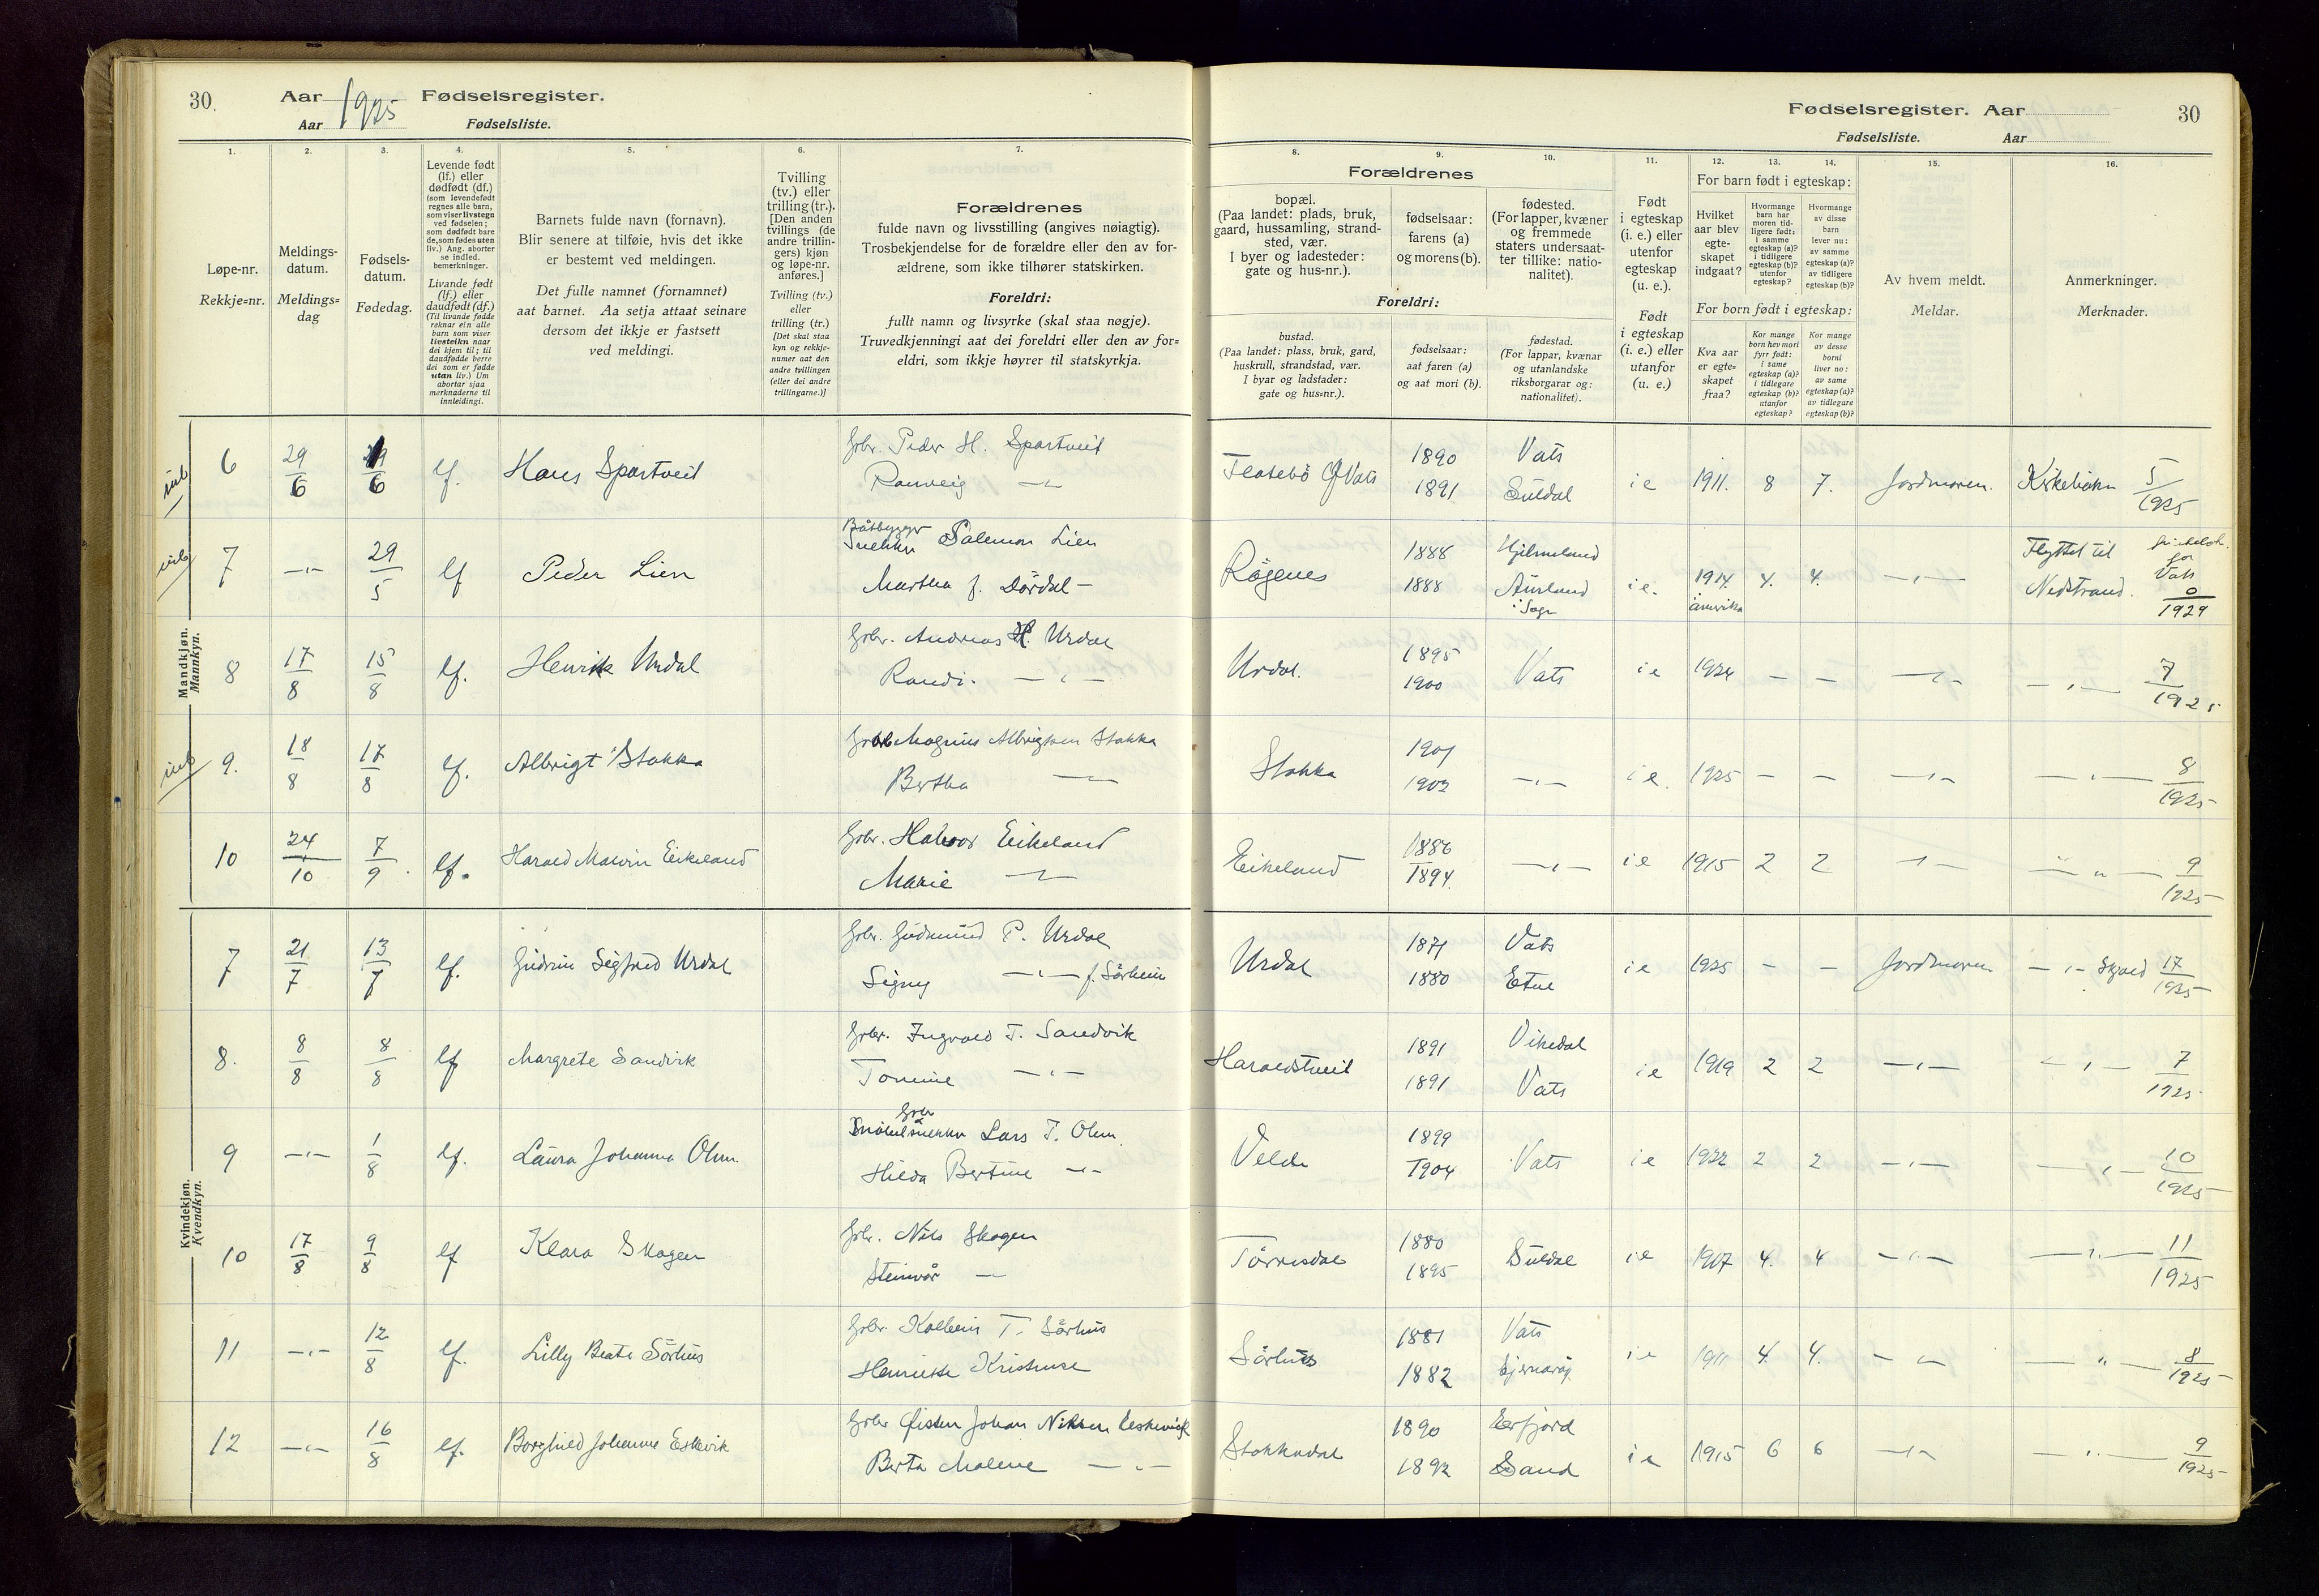 30.
Aar 1925 Fødselsregister.
Aar Fødselsliste.
Fødselsregister. Aar
30
Fødselsliste. Aar
1. 2. 3. 4. 5. 6. 7.
Løpe-nr.
Rekkje=nr.
Meldings-
datum.
Meldings=
dag
Fødsels-
datum.
Fødedag.
Levende født
(lf.) eller
dødfødt (df.)
(som levendefødt
regnes alle barn,
som viser livstegn
ved fødselen;
som dødfødt bare
de, som fødes uten
liv.) Ang. aborter
se indled.
bemerkninger.
Livande født
(lf.) eller
daudfødt (df.)
(Til livande fødde
reknar ein alle
barn som viser
livsteikn naar
dei kjem til; til
daudfødde berre
dei som er fødde
utan liv.) Um
abortar sjaa
merknaderne til
innleidingi.
Barnets fulde navn (fornavn).
Blir senere at tilføie, hvis det ikke
er bestemt ved meldingen.
Det fulle namnet (fornamnet)
aat barnet. Aa setja attaat seinare
dersom det ikkje er fastsett
ved meldingi.
Tvilling
(tv.) eller
trilling (tr.).
[Den anden
tvillings (de
andre trillin-
gers) kjøn
og løpe-nr.
anføres.]
Tvilling (tv.)
eller
trilling (tr.)
[Det skal staa
kyn og rekkje-
numer aat den
andre tvillingen
(eller dei andre
trillingarne.)]
Forældrenes
fulde navn og livsstilling (angives nøiagtig).
Trosbekjendelse for de forældre eller den av for-
ældrene, som ikke tilhører statskirken.
Foreldri:
fullt namn og livsyrke (skal staa nøgje).
Truvedkjenningi aat dei foreldri eller den av for=
eldri, som ikkje høyrer til statskyrkja.
8. 9. 10. 11. 12. 13. 14. 15. 16.
Forældrenes
bopæl.
(Paa landet: plads, bruk,
gaard, hussamling, strand-
sted, vær.
I byer og ladesteder:
gate og hus-nr.).
fødselsaar:
farens (a)
og morens (b).
fødested.
(For lapper, kvæner
og fremmede
staters undersaat-
ter tillike: natio-
nalitet).
Foreldri:
bustad.
(Paa landet: plass, bruk, gard,
huskrull, strandstad, vær.
I byar og ladstader:
gate og hus=nr.).
fødselsaar:
aat faren (a)
og aat mori (b).
fødestad.
(For lappar, kvænar
og utanlandske
riksborgarar og:
nationalitet).
Født
i egteskap
(i. e.) eller
utenfor
egteskap
(u. e.).
Født
i egteskap
(i. e.) eller
utanfor
(u. e.)
For barn født i egteskap:
Hvilket
aar blev
egte-
skapet
indgaat?
Hvormange
barn har
moren tid-
ligere født:
i samme
egteskap (a)?
i tidligere
egteskap (b)?
utenfor
egteskap?
Hvormange
av disse
barn
lever nu:
av samme
egteskap (a)?
av tidligere
egteskap (b)?
For born født i egteskap:
Kva aar
er egte=
skapet
fraa?
Kor mange
born hev mori
fyrr født:
i same
egteskap (a)?
i tidlegare
egteskap (b)?
utanfor
egteskap?
Kor mange
av desse
borni
liver no:
av same
egteskap (a)?
av tidlegare
egteskap (b)?
Av hvem meldt.
Meldar.
Anmerkninger.
Merknader.
Mandkjøn.
Mannkyn.
6 29/6 /6 lf. Hans Spartveit Gbr. Peder H. Spartveit
Ranveig —"—
1890 Vats
1891 Suldal
i e 1911. 8 7. Jordmoren. 5/1925
7 —"— 29/5 lf Peder Lien Båtbygger Salemon Lien
Martha f. Dørdal —
Røgenes 1888 Hjelmeland
1888 Aurland i Sogn
i e. 1914. i amerika 4. 4. —"— Flyttet til Nedstrand. Vats /1929
8 17/8 15/8 lf. Henrik Urdal Gbr. Andreas H. Urdal
Randi. —"—
Urdal. 1895
1900 Vats i e 1924 — — —"— —"— 7/1925
9. 18/8 17/8 lf. Albrigt Stakka Magnus Albrigtsen Stakka
Bertha —"—
Stakka 1901
1902 —"— i e. 1925 — — —"— —"— 8/1925
10 24/10 7/9 lf. Harald Marvin Eikeland Gbr. Halvor Eikeland
Marie —"—
Eikeland 1886
1894. —"— i e 1915 2 2 —"— —"— 9/1925
Kvindekjøn.
Kvendkyn.
7 21/7 13/7 lf. Gudrun Sigfred Urdal Gbr. Gudmund P. Urdal
Signy —"— f. Sørheim
Urdal 1871 Vats
1880 Etne i e 1925 — — Jordmoren —"— Skjold 17/1925
8. 8/8 8/8 lf Margrete Sandvik Gbr. Ingvald T. Sandvik
Tomine —"—
Haraldstveit 1891 Vikedal
1891 Vats i e 1919 2 2 —"— —"— 7/1925
9 —"— 1/8 lf. Laura Johanna Olm. Gbr Lars T. Olm.
Hilda Bertine —"—
1899
1904 Vats i e 1922 2 2 —"— —"— 10/1925
10 17/8 9/8 lf Klara Skogen Gbr. Nils Skogen
Steinvår —
Tørresdal 1880
1895 Suldal i e 1907 4. 4 —"— —"— 11/1925
11 —"— 12/8 lf. Lilly Beate Sørhus Gbr Kolbein T. Sørhus
Henriette Kristense
Sørhus 1881 Vats
1882 i e 1911 4. 4. —"— —"— 8/1925
12 —"— 16/8 lf. Borghild Johanne Eskevik Gbr Øisten Johan
Berta Malene —"—
Stakkadal 1890 Erfjord
1892 Sand i e 1915 6 6 —"— —"— 9/1925